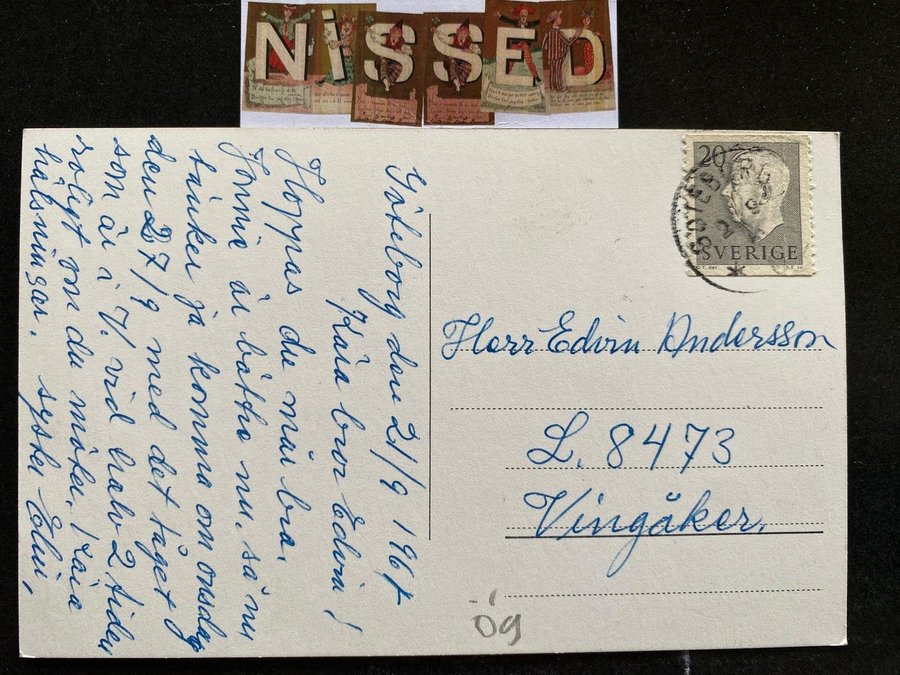 NISSED
Göteborg den 21/9 1961
Kära bror Edvin!
Hoppas du mår bra.
är bättre nu. så nu
tänker ja komma on onsdag
den 27/9 med det tåget
som är i V. vid halv 2 tiden
roligt om du möter. Kära
hälsningar. syster Elin,
20
GÖTEBORG
SVERIGE
Herr Edvin Andersson
L. 8473
Vingåker.
Ög